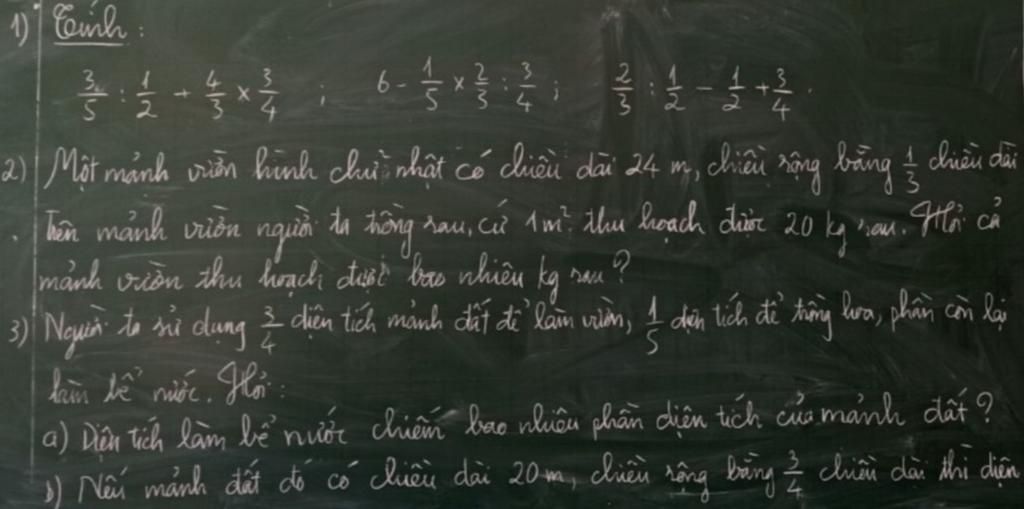 1) Tính :
3/5 : 1/2 + 4/3 × 3/4 ; 6 - 1/5 × 2/3 : 3/4 ; 2/3 : 1/2 - 1/2 + 3/4 .
2) Một mảnh vườn hình chữ nhật có chiều dài 24 m, chiều rộng bằng 1/3 chiều dài
Trên mảnh vườn người ta trồng rau, cứ 1m² thu hoạch được 20 kg rau. Hỏi cả
mảnh vườn thu hoạch được bao nhiêu kg rau?
3) Người ta sử dụng 3/4 diện tích mảnh đất để làm vườn, 1/5 diện tích để trồng hoa, phần còn lại
làm bể nước. Hỏi:
a) Diện tích làm bể nước chiếm bao nhiêu phần diện tích của mảnh đất?
b) Nếu mảnh đất đó có chiều dài 20m, chiều rộng bằng 3/4 chiều dài thì diện